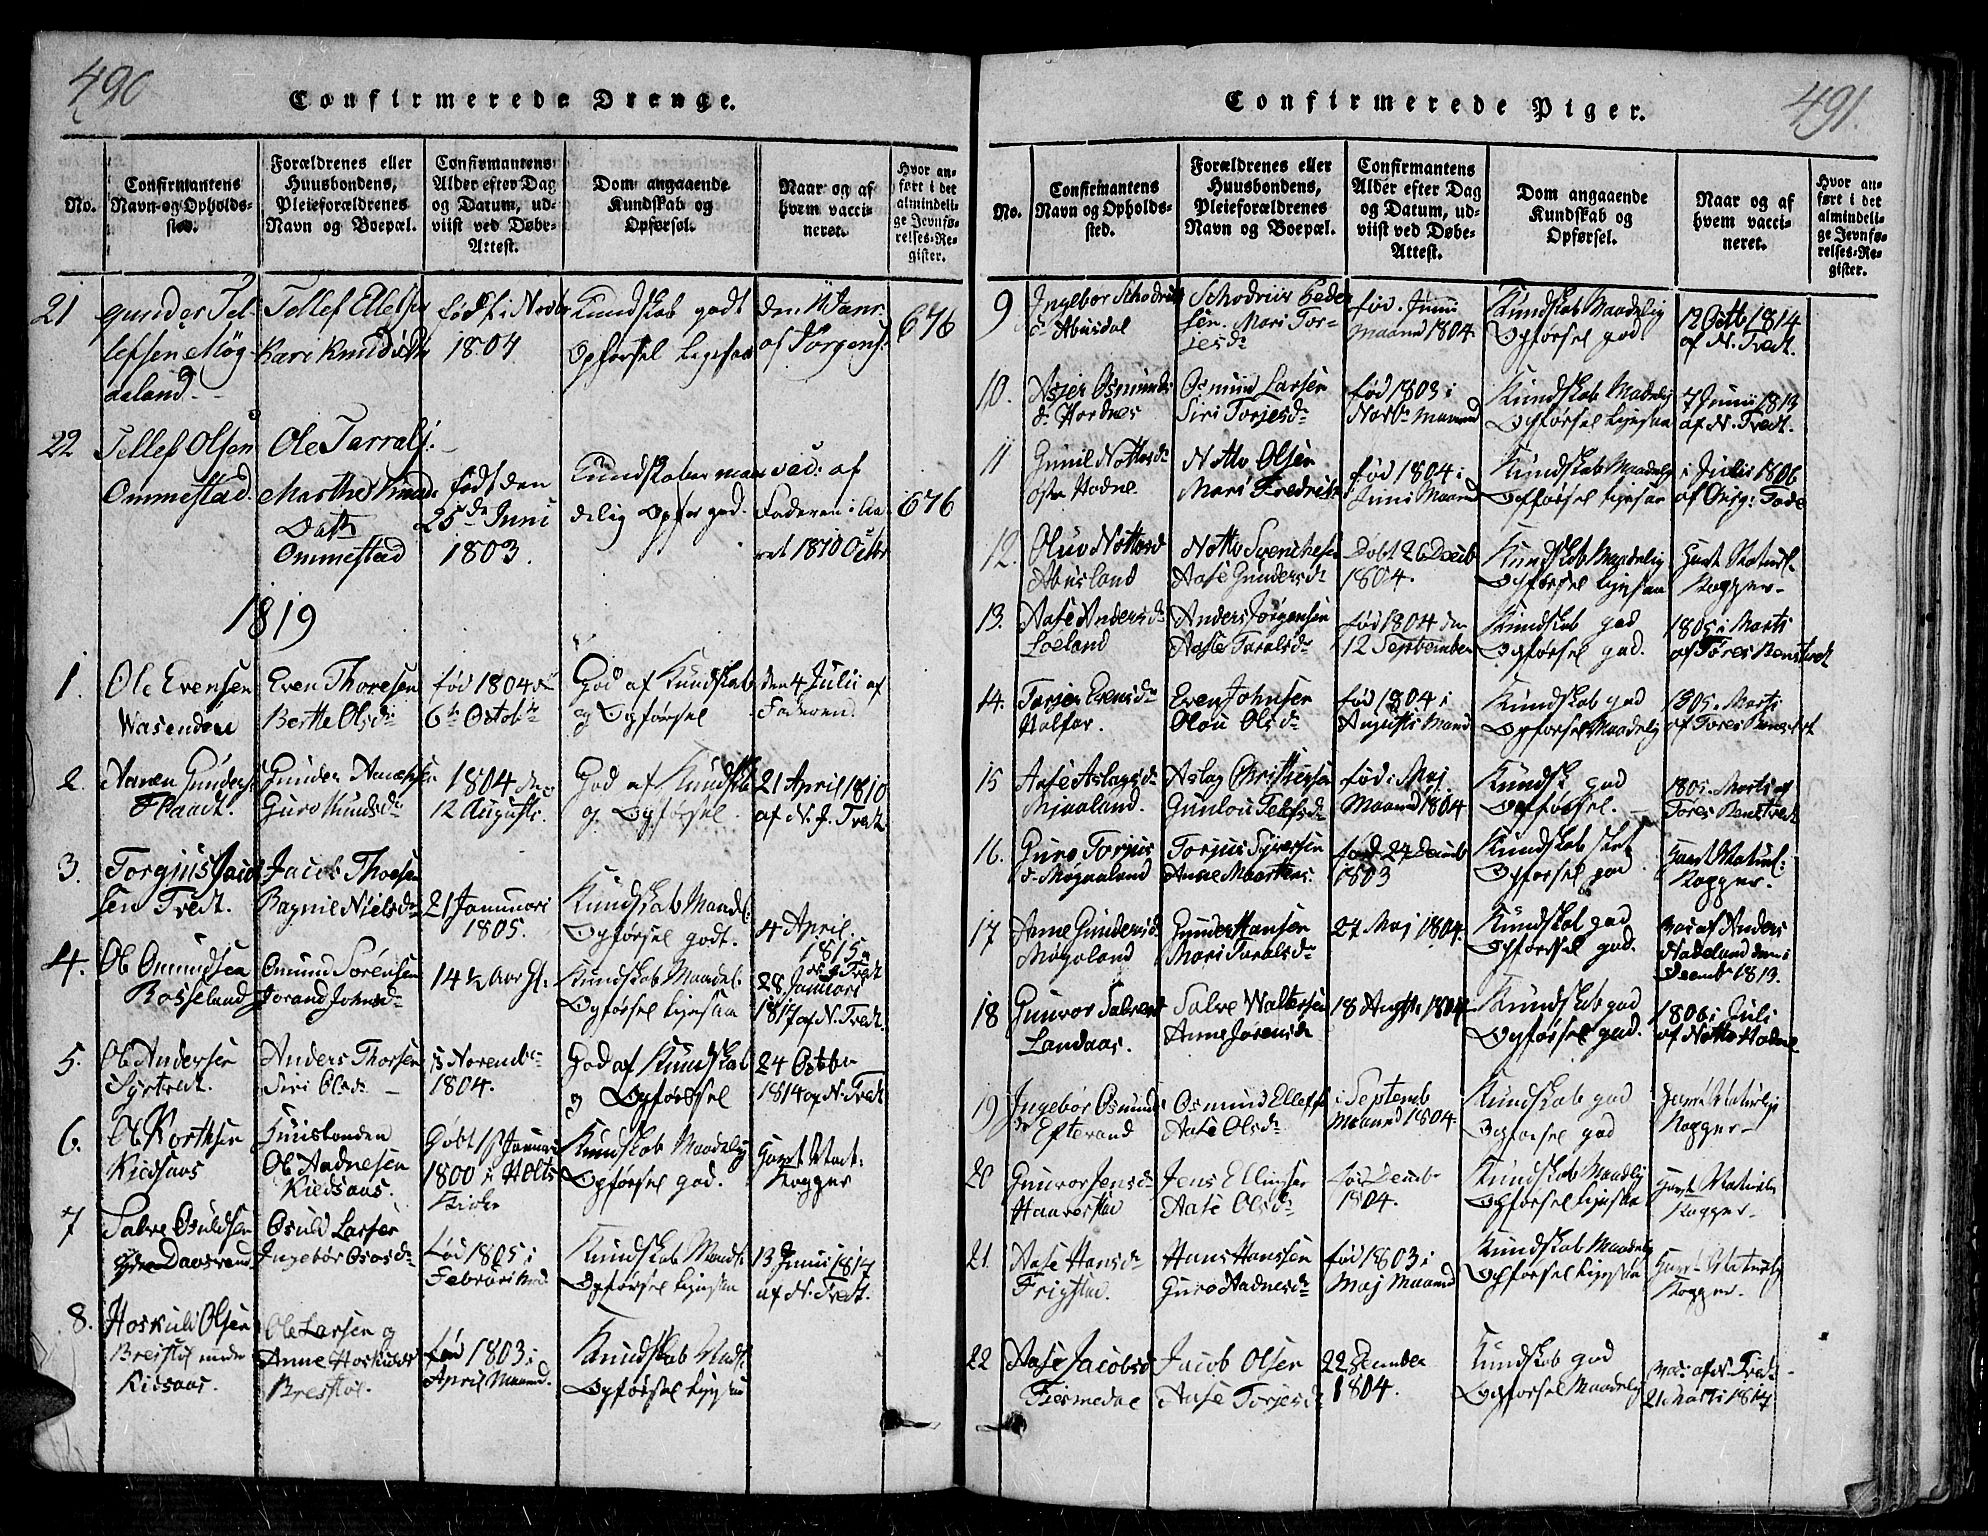 490
Confirmerede Drenge.
No.
Confirmantens Navn og Opholdssted.
Forældrenes eller Huusbondens, Pleieforældrenes Navn og Boepæl.
Confirmantens Alder efter Dag og Datum, udviist ved Døbe-Attest.
Dom angaaende Kundskab og Opførsel.
Naar og af hvem vaccineret.
Hvor anført i det almindelige Jevnførelses-Register.
21
Gunder Tel-
lefsen Møg-
aaland.
Tellef Ellefsen
Kari Knudsdtr
født i Novbr
1804
Kundskab godt
Opførsel ligesaa
den 11 Janr
af Jörgens:
676
22
Tellef Olsen
Ommestad.
Ole Tarrals:
Marthe Knuds
Datt
Ommestad
født den
25de Juni
1803.
Kundskaber maa
delig Opfør god.
vac: af
Faderen i Aa-
ret 1810 Octbr
676
1819
1.
Ole Evensen
Wasenden
Even Thoresen
Berthe Olsdr
fød 1804 d
6te Octobr
God af Kundskab
og Opførsel
den 4 Julii af
Faderen
2.
Aanen Gunders:
Flaadt.
Gunder Aanensen
Guro Knudsdr
1804 den
12 Augusti.
God af Kundskab
og Opførsel.
21 April 1810
af N. J. Tredt
3.
Torgius Jacob
sen Tredt.
Jacob Thoesen
Ragnil Nielsdr
21 Januari
1805.
Kundskab Maadel:
Opførsel godt.
4 April
1815
af N. Tredt
4.
Ole Omundsen
Rosseland
Omund Sörensen
Jorand Johnsdr
14½ Aar Gl.
Kundskab Maadel:
Opførsel ligesaa
28 Januari
1817 af N. Tredt.
5.
Ole Andersen
Syrtvedt.
Anders Thorsen
Siri Olsdr
Novembr
1804.
God af Kundskab
og Opførsel
24 Octobr
1814 af N. Tredt
6.
Kiedsaas
Huusbonden
Ole Aadnesen
Kiedsaas.
Döbt 18 Januar
1800 i Holts
Kirke
Kundskab Maadelig
Opførsel god.
Havt Nat:
Kopper
7
Salve Osuldsen
Davsrand
Osuld Larsen
Ingebör Ososdr
fød 1805 i
Februari Md.
Kundskab Maadl:
Opførsel ligesaa
13 Junii 1817
af N. Tredt.
8.
Hoskuld Olsen
Breistøl under
Kidsaas.
Ole Larsen og
Anne Hoskuldsd
Brestøl.
fød 1803 i
April Maaned.
Kundskab Maadl.
Opførsel ligesaa
491.
Confirmerede Piger.
No.
Confirmantens Navn og Opholdssted.
Forældrenes eller Huusbondens, Pleieforældrenes Navn og Boepæl.
Confirmantens Alder efter Dag og Datum, udviist ved Døbe-Attest.
Dom angaaende Kundskab og Opførsel.
Naar og af hvem vaccineret.
Hvor anført i det almindelige Jevnførelses-Register.
9
Ingebor Schodriis
dr Abusdal
Schodriis Peder
sen. Mari Tor-
jesdr
fød. Junii
Maaned 1804.
Kundskab Maadelig
Opførsel god
12 Octb 1814
af N. Tredt.
10.
Asjer Osmunds
dr Hordnes
Osmund Larsen
Siri Torjesdr
fød 1803 i
Novbr Maaned
Kundskab Madelig
Opførsel ligesaa
7 Junii 1813
af N. Tredt.
11
Gunil Nottosdr
østre Hodne
Notto Olsen
Mari Fredriks
fød 1804 i
Juni Maaned
Kundskab Maadelig
Opførsel ligesaa
i Julii 1806
12.
Oluv Nottosd
Abusland
Notto Svenchesen
Aase Gundersdr
Döbt 26 Decemb
1804.
Kundskab Maadelig
Opførsel ligesaa
Havt Naturl-
Kopper-
13.
Aase Andersdr
Loeland
Anders Jörgensen
Aase Taralsdr
fød 1804 den
12 September
Kundskab god
Opførsel god.
1805 i Marts
af Tores Renstvedt
14.
Torjer Evensdr
Halfar.
Even Johnsen
Olou Olsdr
fød 1804 i
Augusti Maaned
Kundskab god
Opførsel Maadelig
1805. Marts
af Tores Renstvedt
15
Aase Aslagsdr
Mjaaland.
Aslag Christensen
Gunlou Telefsdr
fød i Maj
Maaned 1804
Kundsk god
Opførsel.
1805. Marts af
Tores Renstvedt
16.
Guro Torjus
dr Mögaaland
Torjus Syversen
Anne Mortens:
fød 24 Decemb
1803
Kundskab slet
Opførsel god
Havt Naturl:
Kopper.
17
Anne Gundersd
Mögaland
Gunder Hansen
Mari Taralsdr
27 Maj 1804.
Kundskab god
Opførsel god.
vac af Anders
Aadeland den i
Decembr 1813.
18
Gunvor Salvesd
Landaas.
Salve Waltersen
Anne Jörensdr
18 Augsti 1804
Kundskab god
Opførsel god.
1806 i Juli
af Notto Hodne
19
Ingebör Osmunds
dr Efterand
Osmund Ellefsen
Aase Olsdr
i Septemb
Maaned 1804.
Kundskab god
Opførsel god
Havt Naturlige
Kopper-
20
Gunvor Jensdr
Haavorstad
Jens Ellingsen
Aase Olsdr
fød Decembr
1804.
Kundskab Maadlig
Opførsel ligesaa
Havt Naturl
Kopper-
21.
Aase Hansdr
Frigstad.
Hans Hanssen
Guro Aadnesdr
fød 1803 i
Maj Maaned
Kundskab Maadelig
Opførsel ligesaa
Havt Naturlig
Kopper.
22
Aase Jacobsd
Fiermedal
Jacob Olsen
Aase Torjesdr
22 December
1804.
Kundskab god
Opførsel Maadelig
vac: af N. Tredt
21 Marti 1817